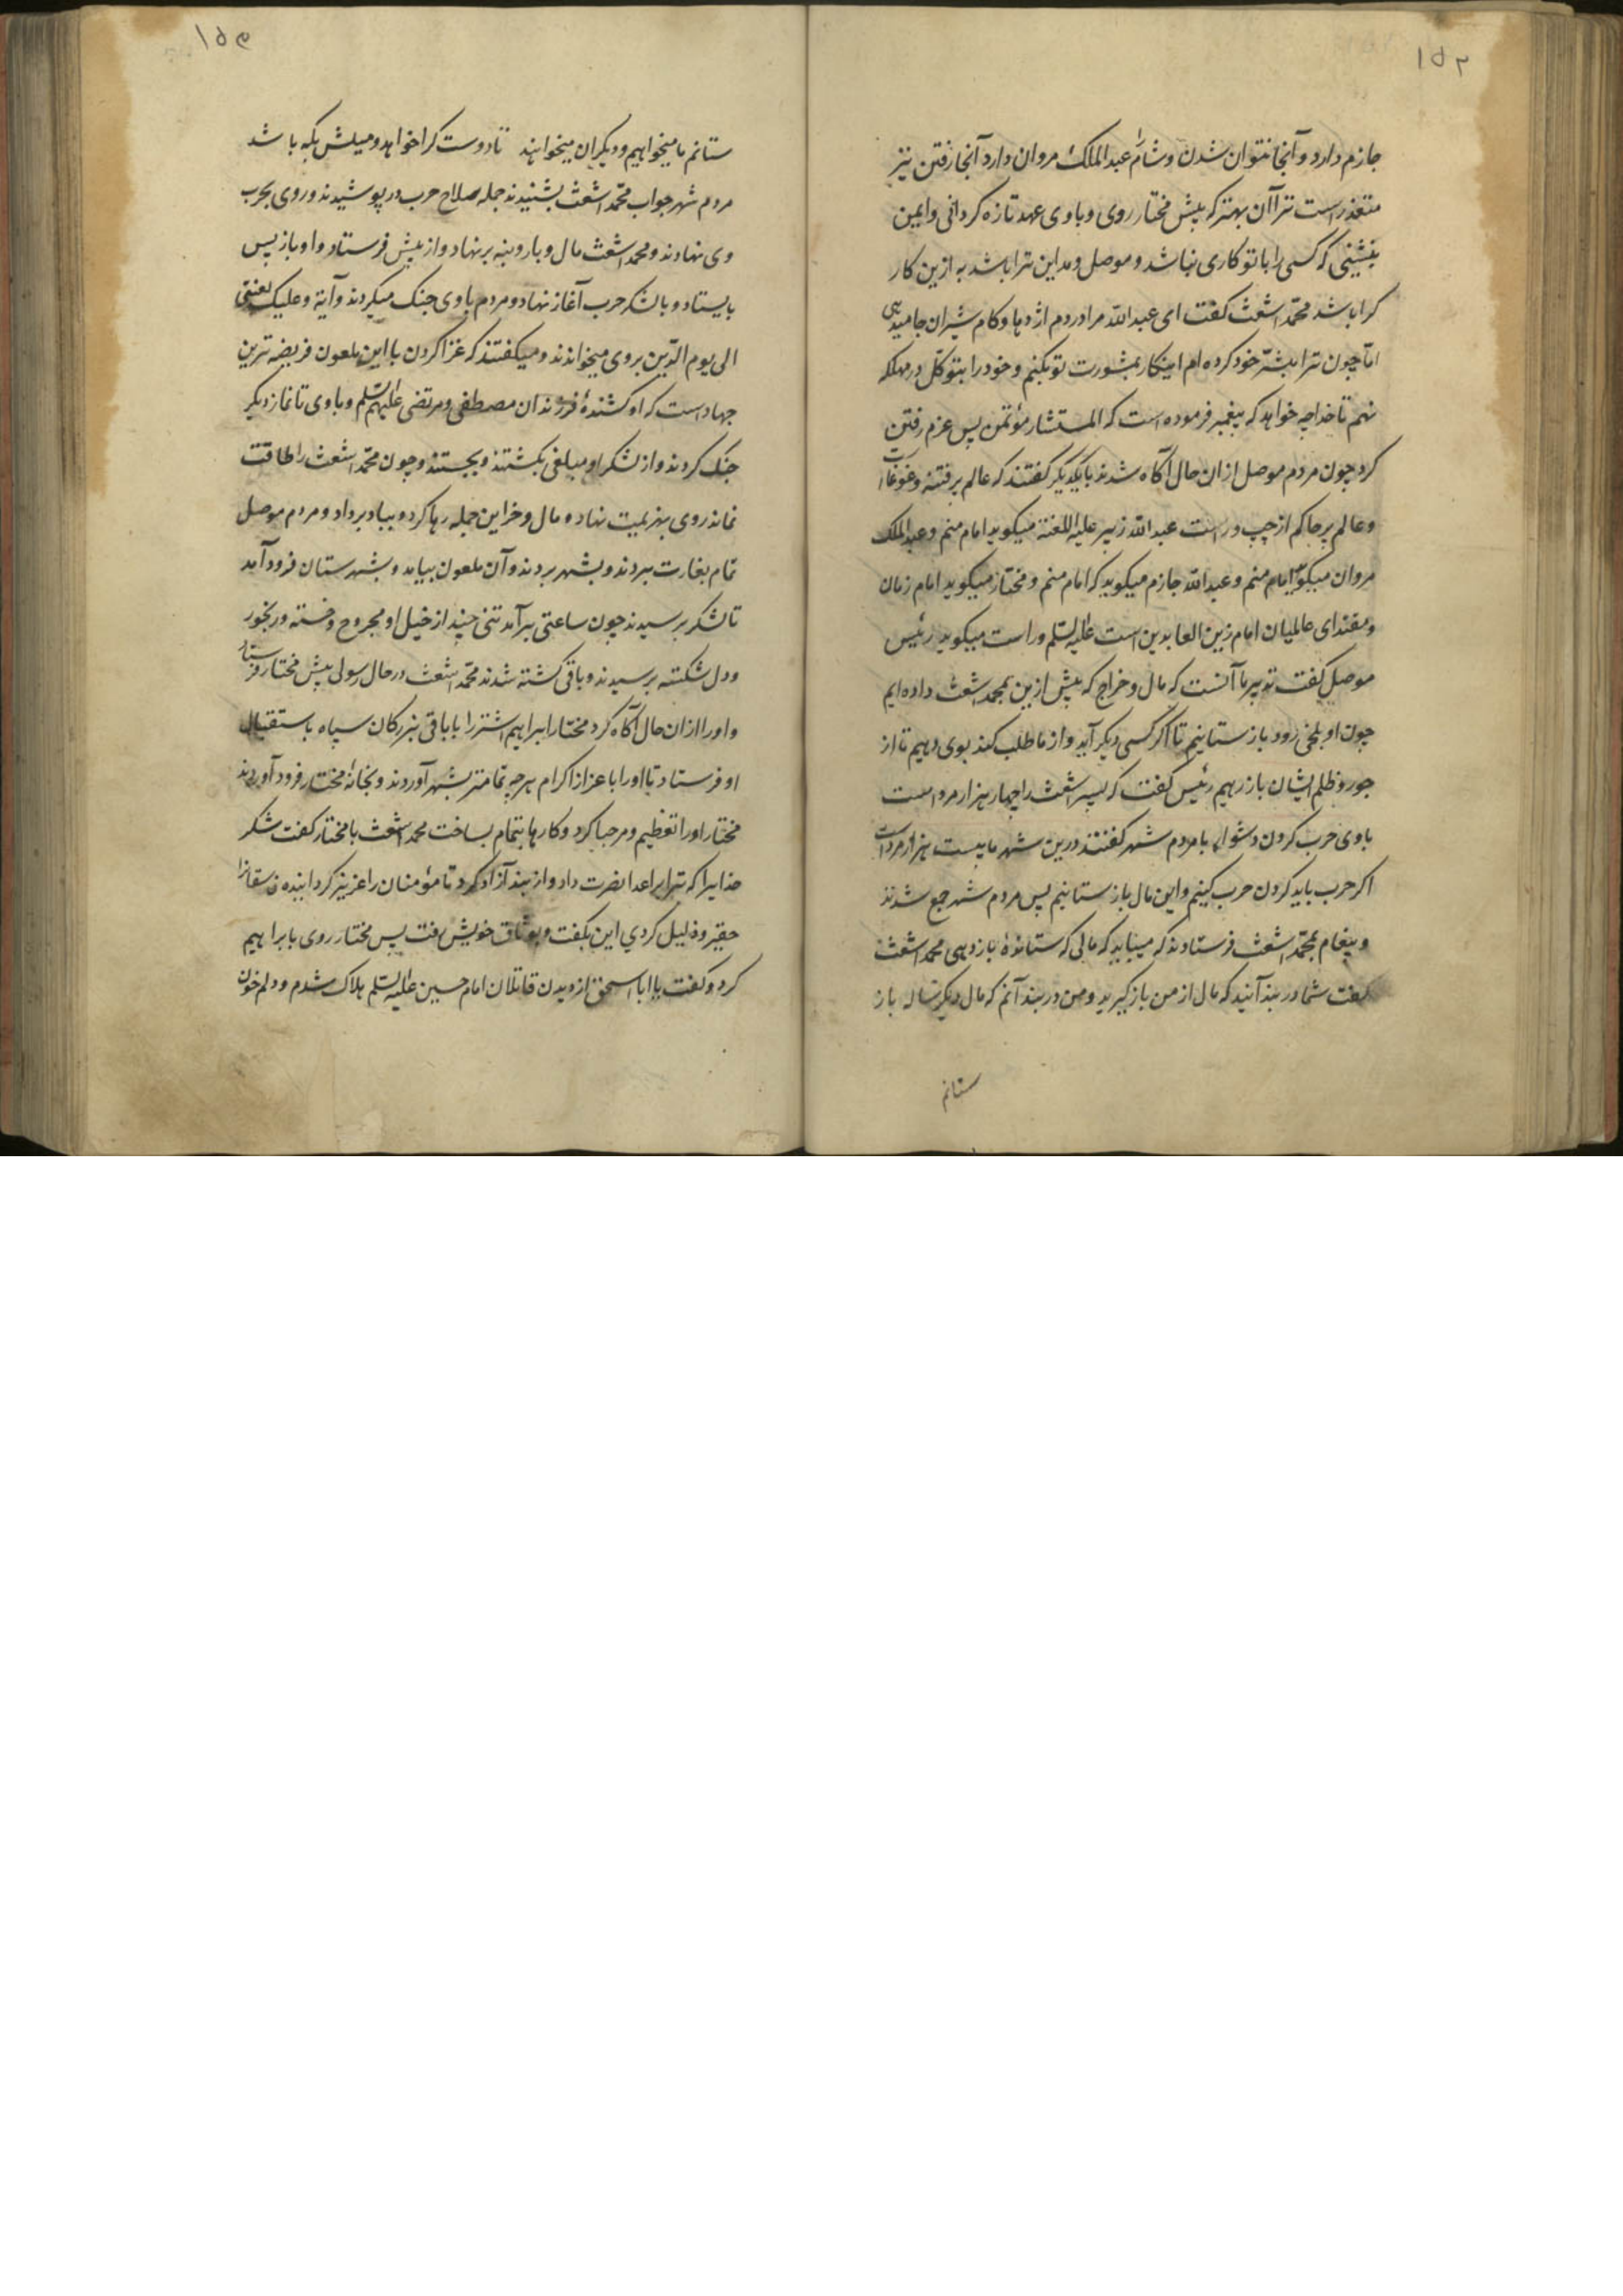 ۱۵۲
جازم دارد و آنجا نتوان شدن و شام عبد الملک مروان دارد آنجا رفتن نیز
متعذر است ترا آن بهتر که پیش مختار روی و با وی عهد تازه کردانی و ایمن
بنشینی که کسی را با تو کاری نباشد و موصل و مداین ترا باشد به ازین کار
کرا باشد محمّد اشعث کفت ای عبد الله مرا در دم اژدها و کام شیران جا میدهی
امّا چون ترا بشرّ خود کرده ام اینکار بمشورت تو بکنم و خود را بتوکّل در مهلکه
نهم تا خدا چه خواهد که پیغمبر فرموده است که المستشار مؤتمن پس عزم رفتن
کرد چون مردم موصل از ان حال آکاه شدند با یکدیکر کفتند که عالم پر فتنه و غوغا است
و عالم پر حاکم از چپ و راست عبد الله زبیر علیه اللعنة میکوید امام منم و عبد الملک
مروان میکوید امام منم و عبد الله جازم میکوید که امام منم و مختار میکوید امام زمان
و مقتدای عالمیان امام زین العابدین است علیه السّلم و راست میکوید رئیس
موصل کفت تدبیر ما آنست که مال و خراج که پیش ازین بمحمد اشعث داده ایم
چون او بلخی رود باز ستانیم تا اکر کسی دیکر آید و از ما طلب کند بوی دهیم تا از
جور و ظلم ایشان باز رهیم رئیس کفت که پسر اشعث را چهار هزار مرد است
با وی حرب کردن دشوار با مردم شهر کفتند درین شهر ما بیست هزار مرد است
اکر حرب باید کردن حرب کنیم و این مال باز ستانیم پس مردم شهر جمع شدند
و پیغام بمحمّد اشعث فرستادند که میباید که مالی که ستاندهٔ باز دهی محمد اشعث
کفت شما در بند آنید که مال از من باز کیرید و من در بند آنم که مال دیکر ساله باز
ستانم
۱۵۳
ستانم ما میخواهیم و دیکران میخواهند تا دوست کرا خواهد و میلش بکه باشد
مردم شهر جواب محمّد اشعث بشنیدند جمله صلاح حرب در پوشیدند و روی بحرب
وی نهادند و محمد اشعث مال و بار و بنه بر نهاد و از پیش فرستاد و او باز پس
بایستاد و با لشکر حرب آغاز نهاد و مردم با وی جنک میکردند و آیة و علیک لعنتی
الی یوم الدّین بروی میخواندند و میکفتند که غزا کردن با این ملعون فریضه ترین
جهاد است که او کشندهٔ فرزندان مصطفی و مرتضی علیهم السّلم و با وی تا نماز دیکر
جنک کردند و از لشکر او مبلغی بکشتند و بخستند و چون محمّد اشعث را طاقت
نماند روی بهزیمت نهاد و مال و خزاین جمله رها کرد و بباد برداد و مردم موصل
تمام بغارت ببردند و بشهر بردند و آن ملعون بیامد و بشهرستان فرود آمد
تا لشکر برسیدند چون ساعتی بر آمد تنی چند از خیل او مجروح و خسته و رنجور
و دل شکسته برسیدند و باقی کشته شدند محمّد اشعث در حال رسولی پیش مختار فرستاد
و او را از ان حال آکاه کرد مختار ابراهیم اشتر را با باقی بزرکان سپاه باستقبال
او فرستاد تا او را با عزاز اکرام هر چه تمامتر بشهر آوردند و بخانهٔ مختار فرود آوردند
مختار او را تعظیم و مرحبا کرد و کارها بتمام بساخت محمد اشعث با مختار کفت شکر
خدایرا که ترا بر اعدا نصرت داد و از بند آزاد کرد تا مؤمنان را عزیز کردانیده فاسقانرا
حقیر و ذلیل کردی این بکفت و بوثاق خویش رفت پس مختار روی بابراهیم
کرد و کفت یا ابا اسحق از دیدن قاتلان امام حسین علیه السّلم هلاک شدم و دلم خون